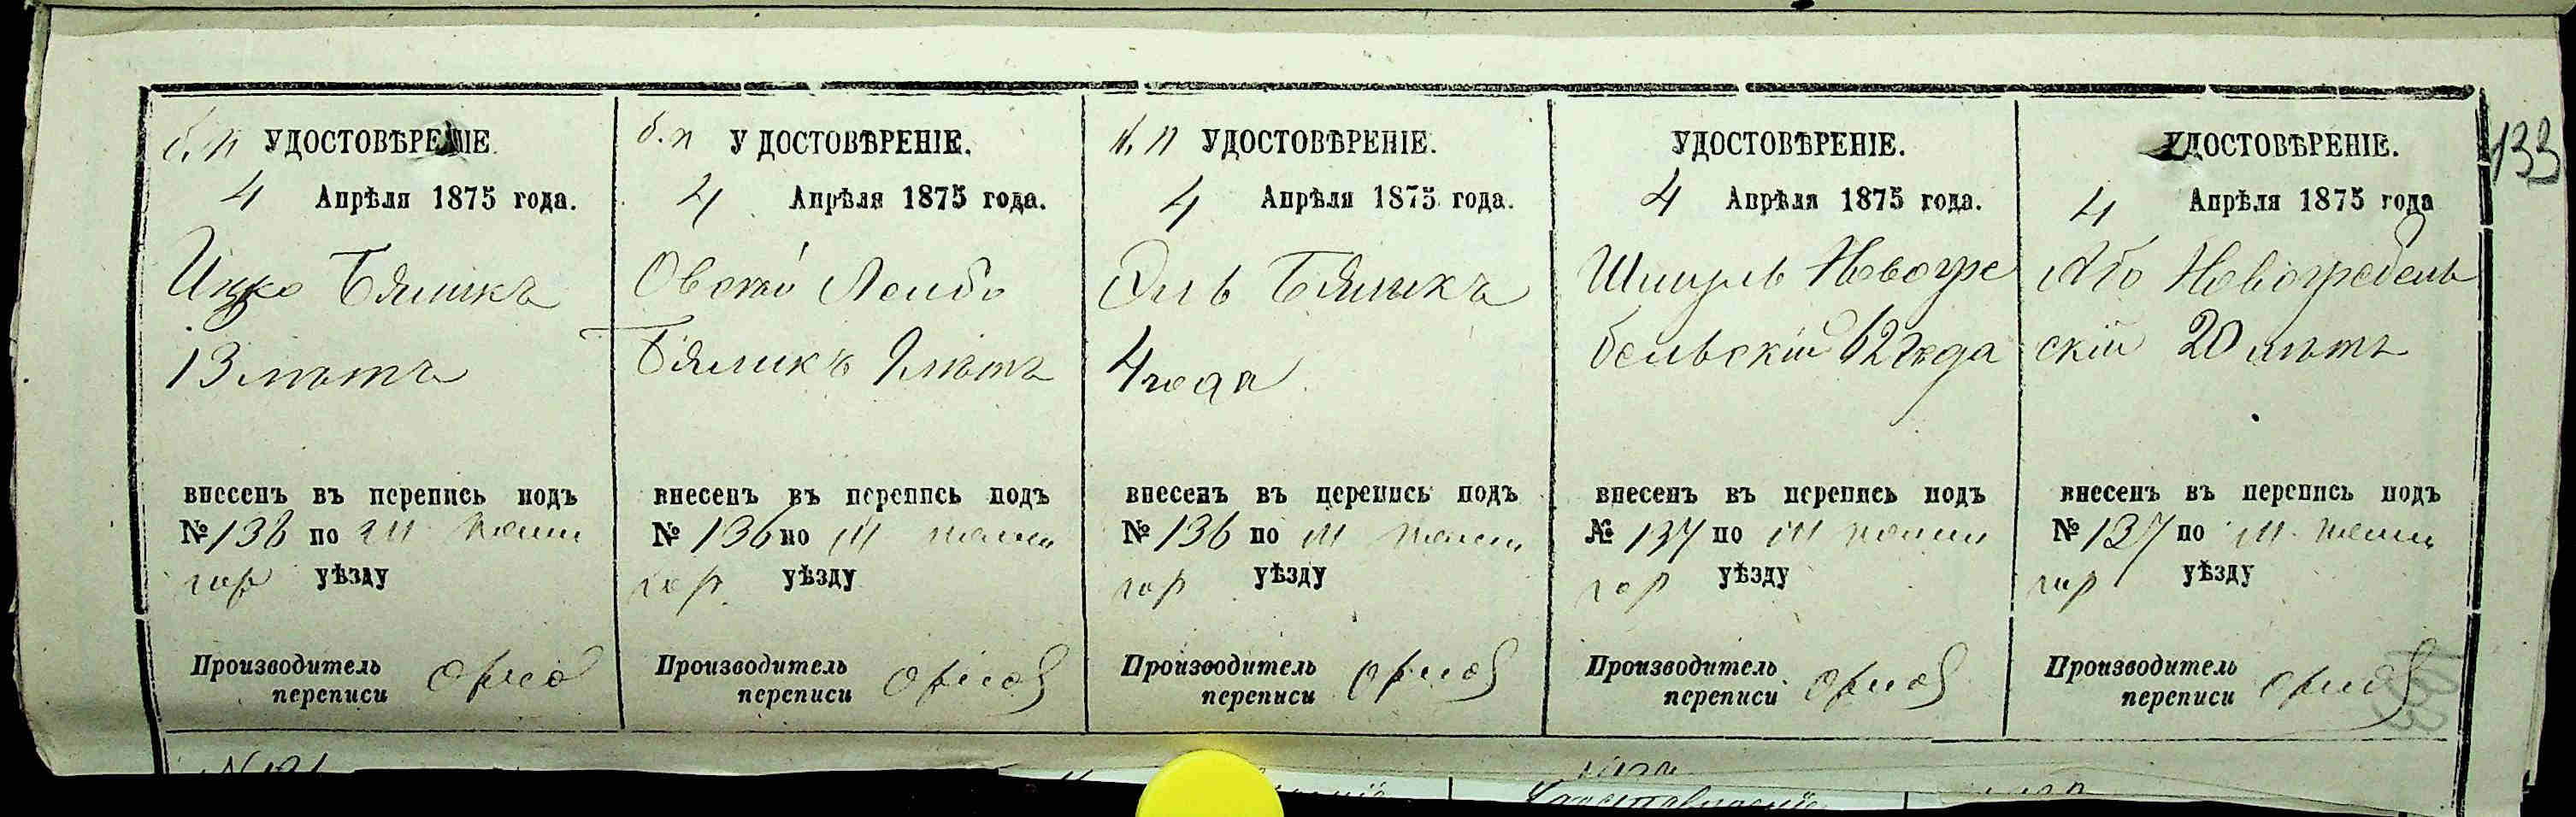 133
б. п УДОСТОВѢРЕНІЕ.
4 Апрѣля 1875 года.
Ицко Бяликъ
13 лѣтъ
внесенъ въ перепись подъ
№ 136 по
гор уѣзду
Производитель
переписи
б. п УДОСТОВѢРЕНІЕ.
4 Апрѣля 1875 года.
Лейбо
Бяликъ 9 лѣтъ
внесенъ въ перепись подъ
№ 136 по
гор уѣзду
Производитель
переписи
б. п УДОСТОВѢРЕНІЕ.
4 Апрѣля 1875 года.
Эль Бяликъ
4 года
внесенъ въ перепись подъ
№ 136 по
гор уѣзду
Производитель
переписи
УДОСТОВѢРЕНІЕ.
4 Апрѣля 1875 года.
Шмуль Новогре
бельскій 62 года
внесенъ въ перепись подъ
№ 137 по
гор уѣзду
Производитель
переписи
УДОСТОВѢРЕНІЕ.
4 Апрѣля 1875 года
Або Новогребель
скій 20 лѣтъ
внесенъ въ перепись подъ
№ 137 по
гор уѣзду
Производитель
переписи